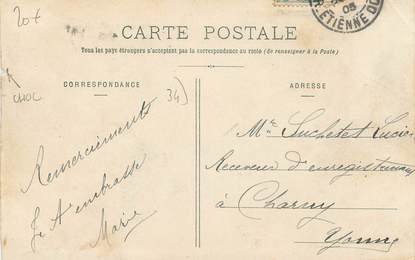 20€
CARTE POSTALE
Tous les pays étrangers n'acceptent pas la correspondance au recto (Se renseigner à la Poste)
CORRESPONDANCE
ADRESSE
CHOC
34)
Remerciements
Je t'embrasse
Marie
Mr Suchetet Lucien
Receveur d'enregistrement
à Charny
Yonne
ETIENNE DU
05